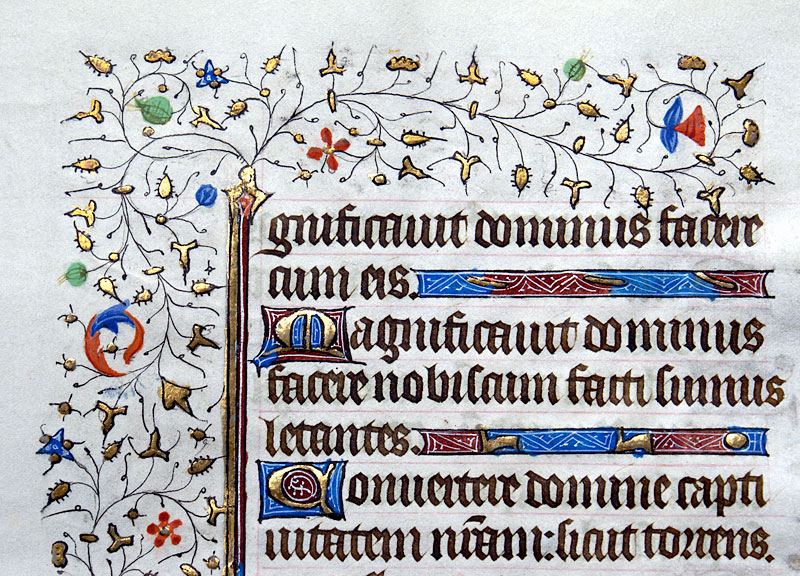 gnificauit dominus facere
cum eis.
Magnificauit dominus
facere nobiscum facti sumus
letantes.
Conuertere domine capti
uitatem nr̄am: sicut torrens.